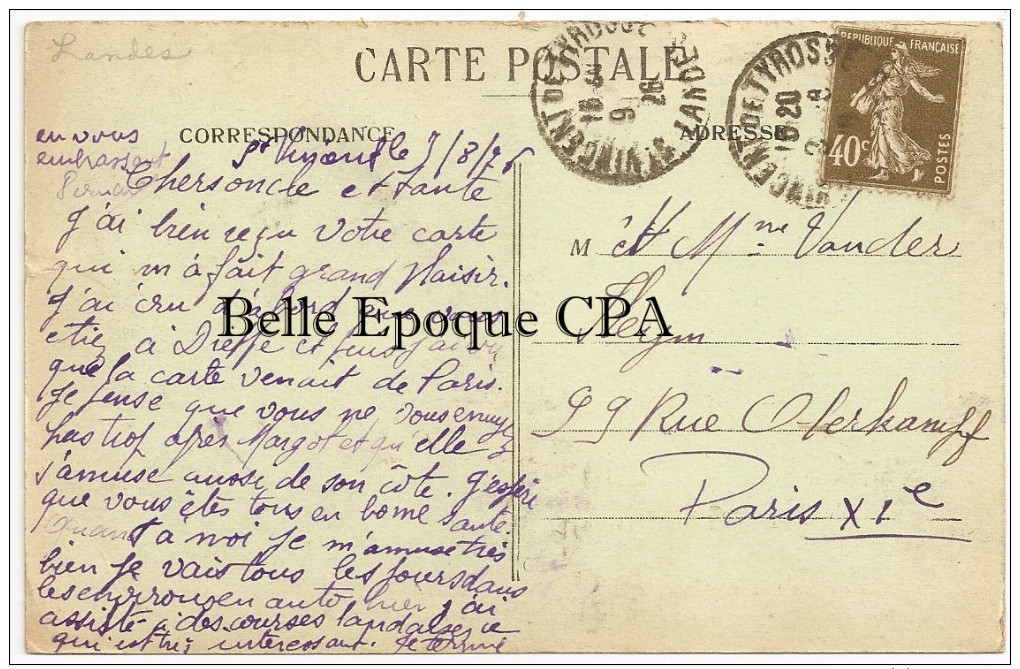 Landes
CARTE POSTALE
CORRESPONDANCE
ADRESSE
ST VINCENT DE TYROSSE LANDES
16 9 26
VINCENT DE TYROSSE
16 20
REPUBLIQUE FRANÇAISE
40c
POSTES
en vous
embrassant
St Vincent le 9/8/26
Chers oncle et tante
j'ai bien reçu votre carte
qui m'a fait grand plaisir.
J'ai cru d'abord que vous
etiez à Dieppe et puis j'ai vu
que la carte venait de Paris.
Je pense que vous ne vous ennuyez
pas trop après Margot et qu'elle
s'amuse aussi de son côte. J'espère
que vous êtes tous en bonne santé.
Quant a moi je m'amuse très
bien je vais tous les jours dans
les environs en auto hier j'ai
assisté à des courses landaises ce
qui est très interessant. Je termine
M et Mme Vander
Heym
99 Rue Oberkampf
Paris XIe
Belle Epoque CPA